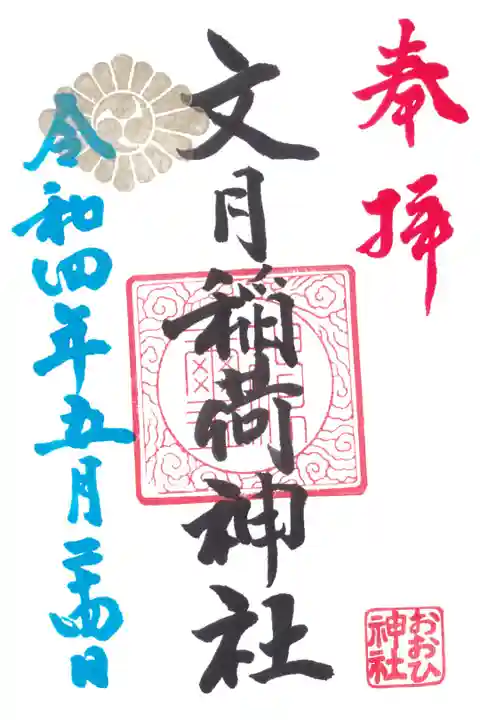 奉拝
文月稲荷神社
令和四年五月二十四日
おおひ
神社